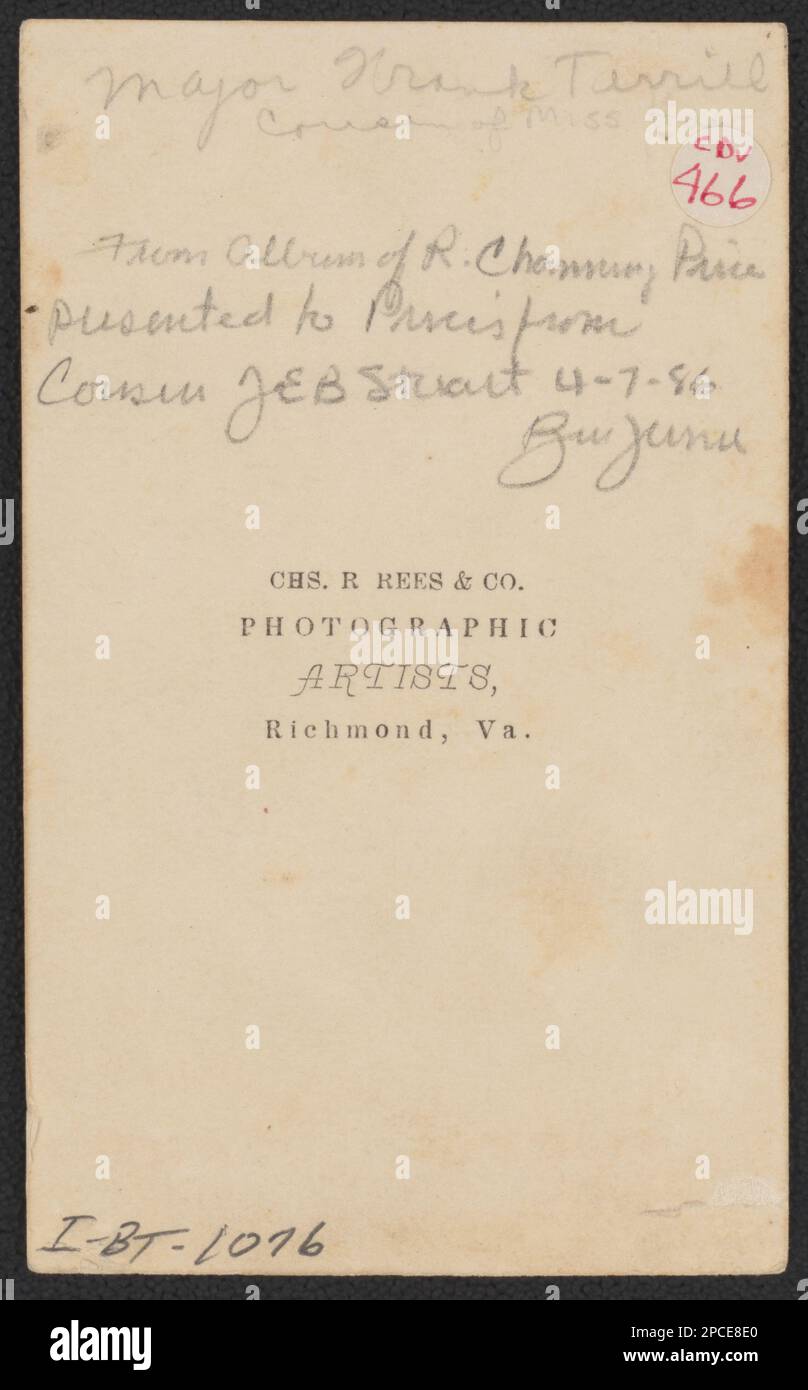 Major Frank Terrill
Cousin of Miss
CDV
466
From Album of R. Channing Price
presented to from
Cousin JEB Stuart 4-7-86
CHS. R REES & CO.
PHOTOGRAPHIC
ARTISTS,
Richmond, Va.
I-BT-1076
alamy
alamy
Image ID: 2PCE8E0
www.alamy.com